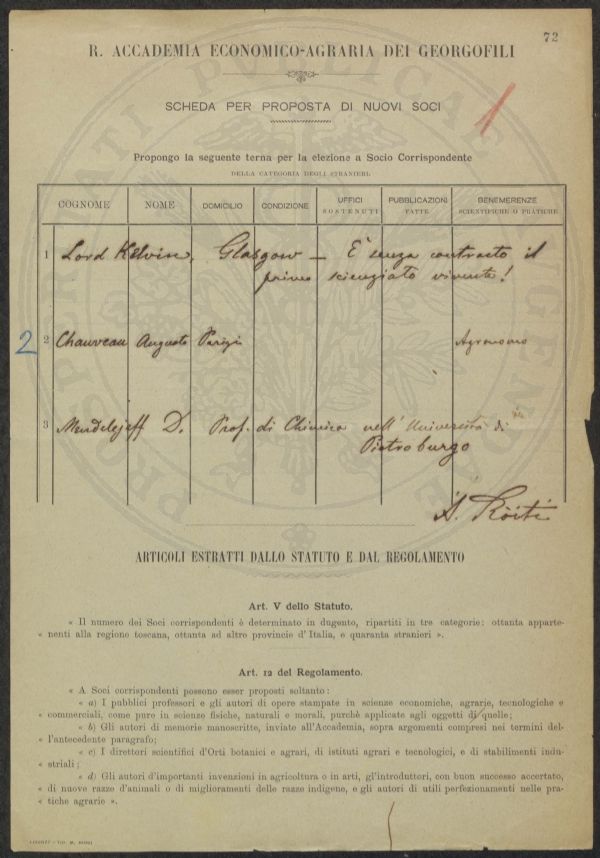 72
R. ACCADEMIA ECONOMICO-AGRARIA DEI GEORGOFILI
SCHEDA PER PROPOSTA DI NUOVI SOCI
1
Propongo la seguente terna per la elezione a Socio Corrispondente
DELLA CATEGORIA DEGLI STRANIERI.
COGNOME NOME DOMICILIO CONDIZIONE UFFICI SOSTENUTI PUBBLICAZIONI FATTE BENEMERENZE SCIENTIFICHE O PRATICHE
1 Lord Kelvin, Glasgow – È senza contrasto il
primo scienziato vivente!
2 2 Chauveau Augusto Parigi Agronomo
3 Mendelejeff D. Prof. di Chimica nell'Università di
Pietroburgo
A. Ròiti
ARTICOLI ESTRATTI DALLO STATUTO E DAL REGOLAMENTO
Art. V dello Statuto.
« Il numero dei Soci corrispondenti è determinato in dugento, ripartiti in tre categorie: ottanta apparte-
« nenti alla regione toscana, ottanta ad altre provincie d'Italia, e quaranta stranieri ».
Art. 12 del Regolamento.
« A Soci corrispondenti possono esser proposti soltanto:
« a) I pubblici professori e gli autori di opere stampate in scienze economiche, agrarie, tecnologiche e
« commerciali, come pure in scienze fisiche, naturali e morali, purchè applicate agli oggetti di quelle;
« b) Gli autori di memorie manoscritte, inviate all'Accademia, sopra argomenti compresi nei termini del-
« l'antecedente paragrafo;
« c) I direttori scientifici d'Orti botanici e agrari, di istituti agrari e tecnologici, e di stabilimenti indu-
« striali;
« d) Gli autori d'importanti invenzioni in agricoltura o in arti, gl'introduttori, con buon successo accertato,
« di nuove razze d'animali o di miglioramenti delle razze indigene, e gli autori di utili perfezionamenti nelle pra-
« tiche agrarie ».